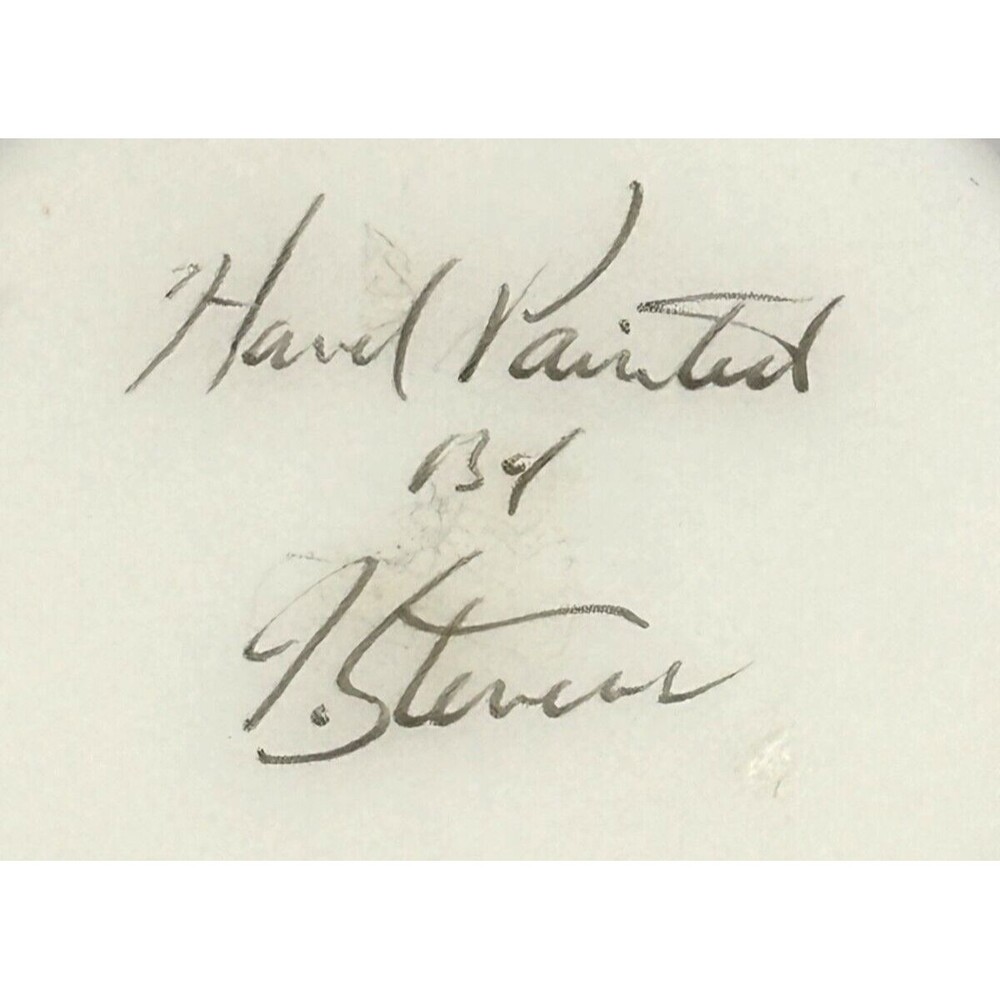 Hand Painted
By
J. Stevens